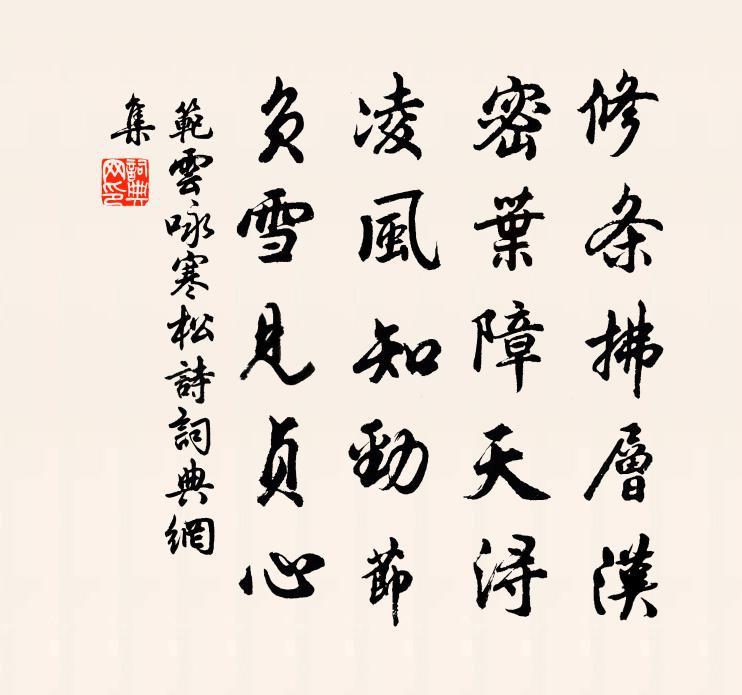 修条拂層漢
密葉障天潯
凌風知勁節
负雪見貞心
範雲咏寒松詩詞典網
集
詞典
网印